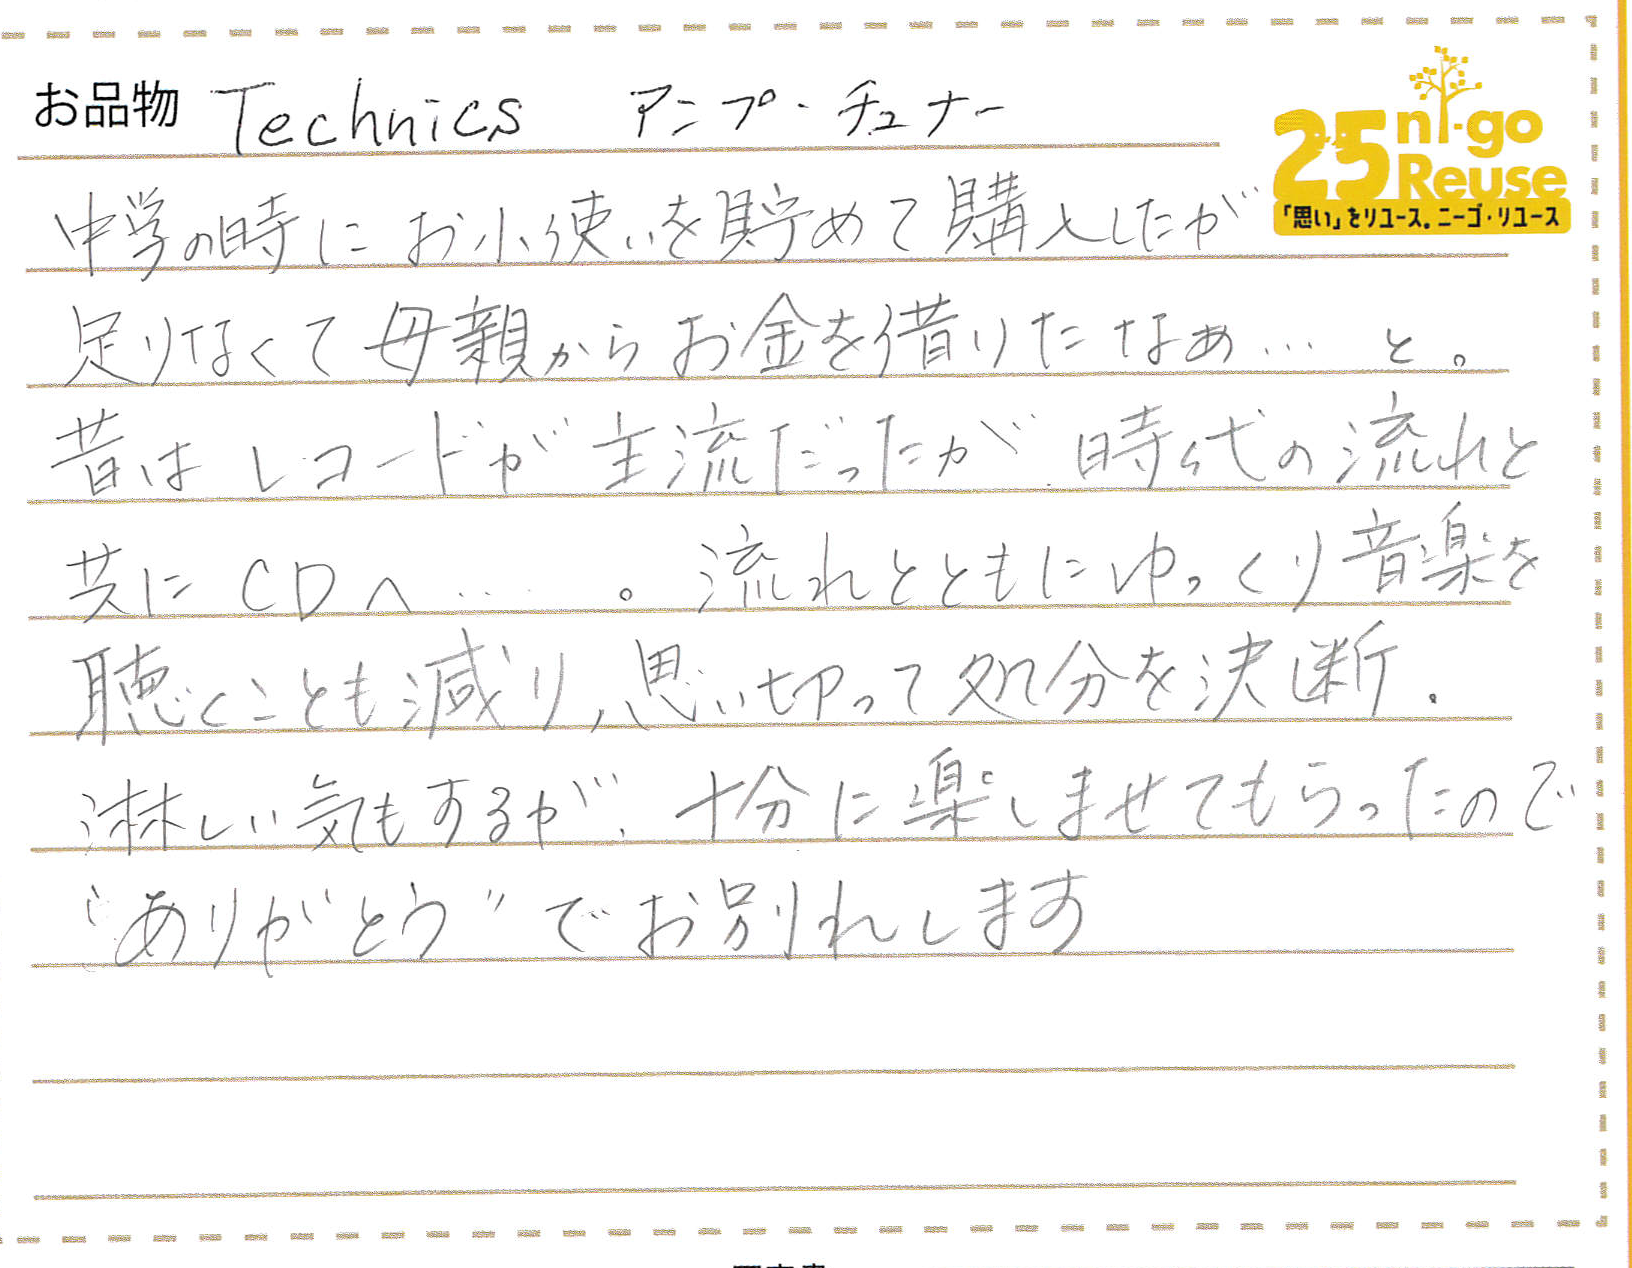 お品物 Technics アンプ・チュナー
25 ni-go Reuse
「思い」をリユース。ニーゴ・リユース
中学の時にお小使いを貯めて購入したが
足りなくて母親からお金を借りたなぁ… と。
昔はレコードが主流だったが、時代の流れと
共にCDへ……。流れとともにゆっくり音楽を
聴くことも減り、思い切って処分を決断。
淋しい気もするが、十分に楽しませてもらったので
“ありがとう”でお別れします